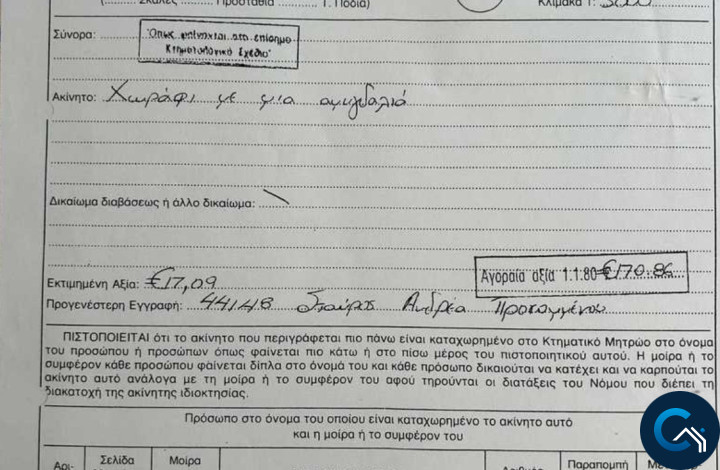 (.......... Σκάλες .......... Προστάθια .......... Τ. Πόδια)
Κλίμακα 1:
Σύνορα:
"Όπως φαίνονται στο επίσημο
Κτηματολογικό Σχέδιο"
Ακίνητο: Χωράφι με μια αμυγδαλιά
Δικαίωμα διαβάσεως ή άλλο δικαίωμα:
Εκτιμημένη Αξία: €17,09
Αγοραία αξία 1.1.80 €170.86
Προγενέστερη Εγγραφή: 44148 Σταύρος Ανδρέα
ΠΙΣΤΟΠΟΙΕΙΤΑΙ ότι το ακίνητο που περιγράφεται πιο πάνω είναι καταχωρημένο στο Κτηματικό Μητρώο στο όνομα
του προσώπου ή προσώπων όπως φαίνεται πιο κάτω ή στο πίσω μέρος του πιστοποιητικού αυτού. Η μοίρα ή το
συμφέρον κάθε προσώπου φαίνεται δίπλα στο όνομά του και κάθε πρόσωπο δικαιούται να κατέχει και να καρπούται το
ακίνητο αυτό ανάλογα με τη μοίρα ή το συμφέρον του αφού τηρούνται οι διατάξεις του Νόμου που διέπει τη
διακατοχή της ακίνητης ιδιοκτησίας.
Πρόσωπο στο όνομα του οποίου είναι καταχωρημένο το ακίνητο αυτό
και η μοίρα ή το συμφέρον του
Αρι-
Σελίδα
Μοίρα
Αριθμός
Παραπομπή